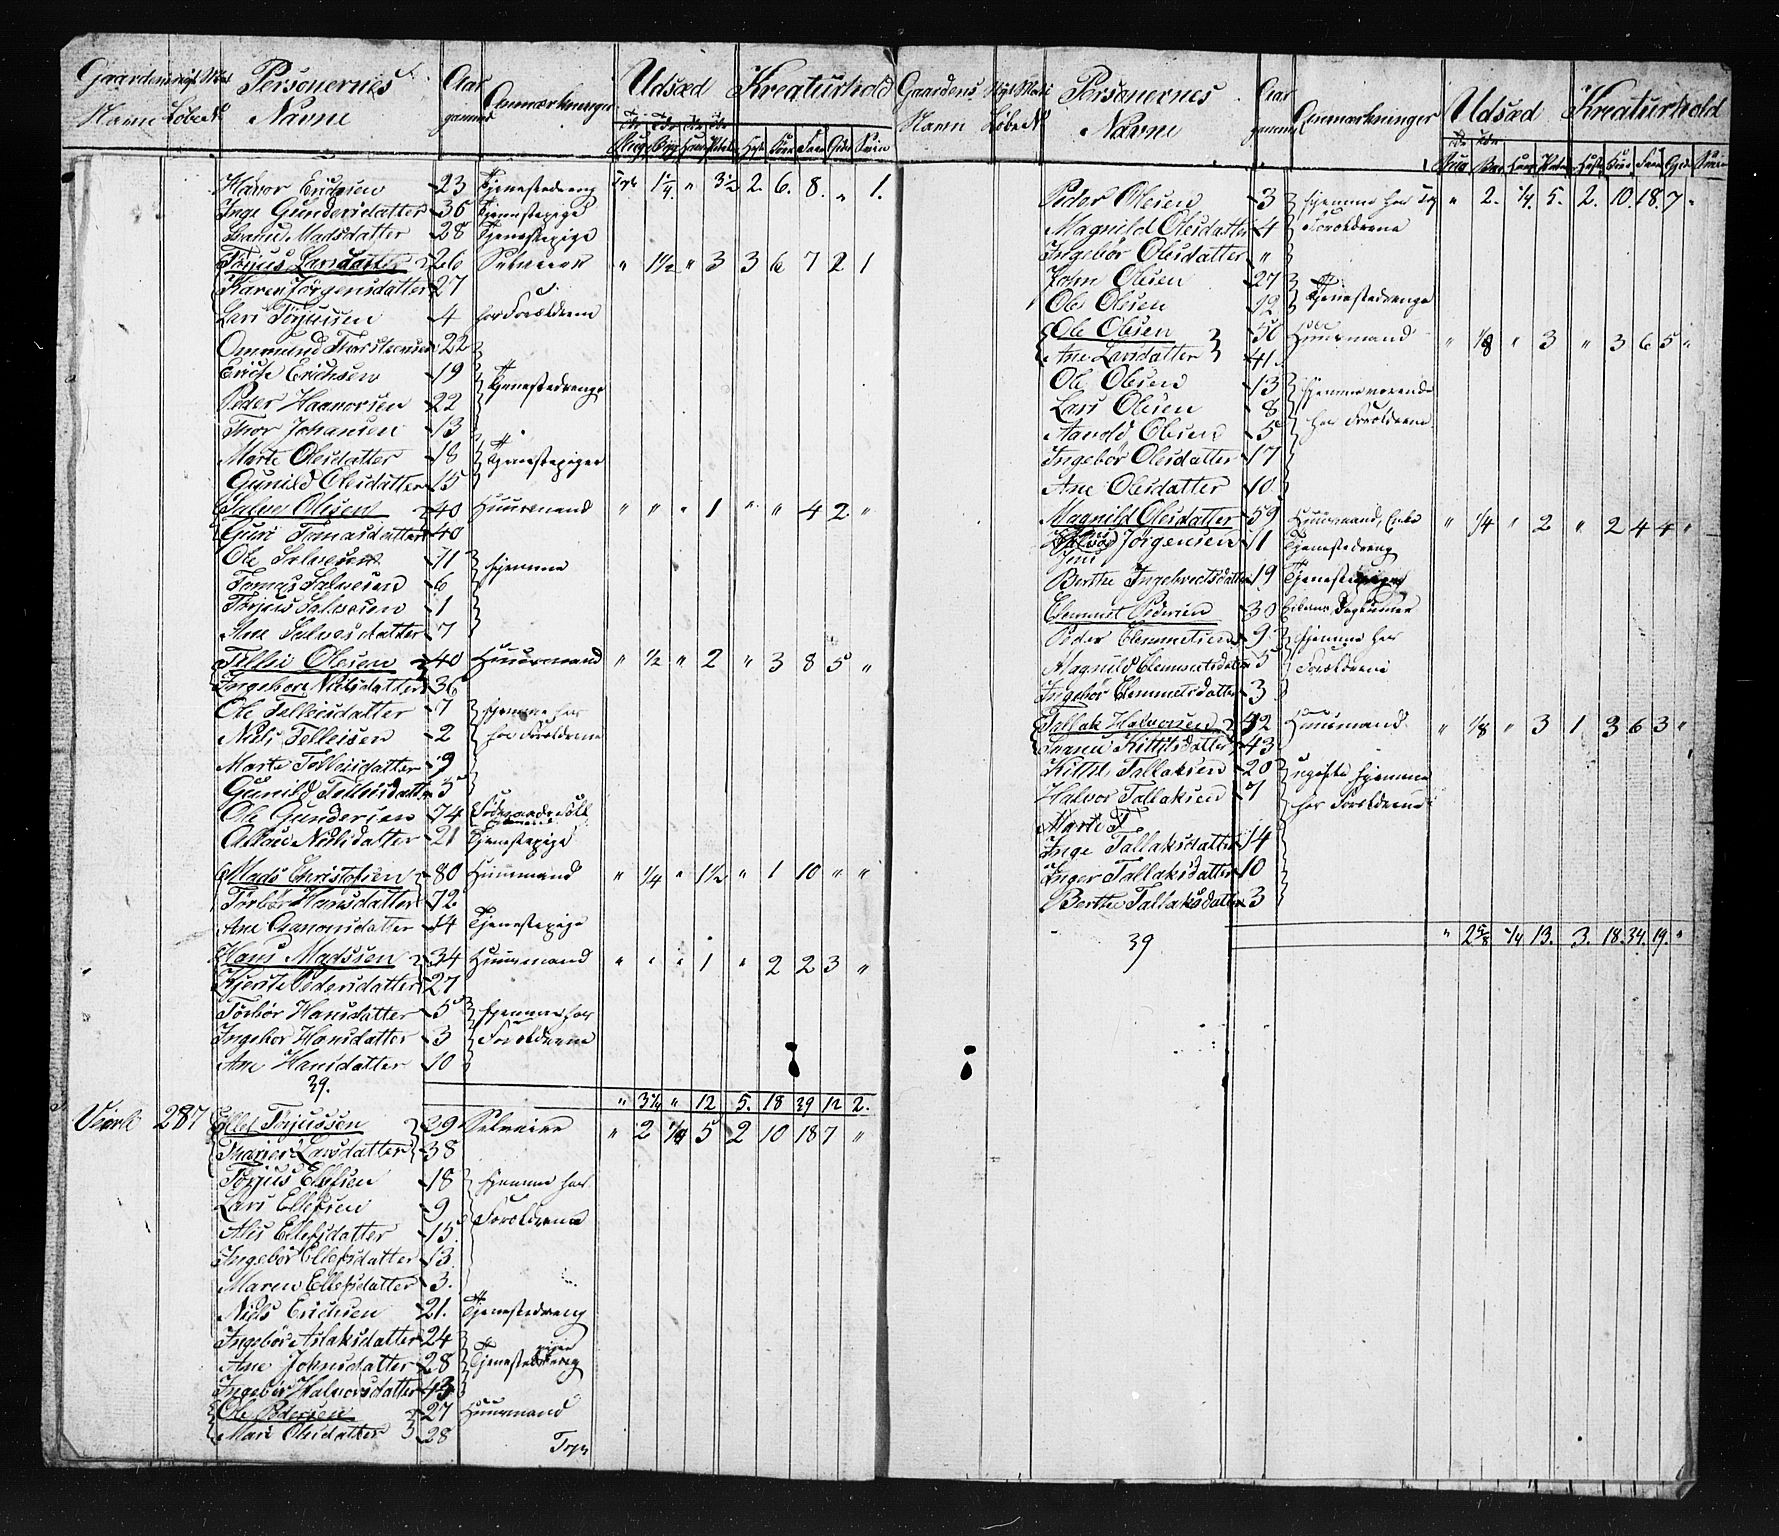 Gaardens Nye Mat Personernes Aar Anmærkninger Udsæd Kreaturhold
Navn Løbe No Navne gammel
Rug Byg Havre Potet Hest Køer Faar Gjed Sviin
Halvor Erichsen 23 Tjenestedreng Trp 1 1/4 " 3 1/2 2. 6. 8. " 1.
Inge Gundersdatter 36 Tjenestepige
Madsdatter 28 Tjenestepige
Tørjus Larsdatter 26 Selveier " 1 1/2 " 3 3 6 7 2 1
Karen Jørgensdatter 27
Lars Tørjussen 4 hos Forældrene
Ommund Thorsteensen 22
Erich Erichsen 19 Tjenestedrenge
Peder Haavorsen 22
Thor Johansen 13
Marte Olesdatter 18 Tjenestepiger
Gunild Olesdatter 15
Salve Olesen 40 Huusmand " " " 1 " " 4 2 "
Guri Tomasdatter 40
Ole Salvesen 11 hjemme
Tomas Salvesen 6
Tørjus Salvesen 1
Ane Salvesdatter 7
Tellei Olesen 40 Huusmand " 1/2 " 2 " 3 8 5 "
Ingebore Nielsdatter 36
Ole Telleisdatter 7 hjemme hos
Niels Telleisen 2 hos Forældrene
Marte Telleisdatter 9
Gunild Telleisdatter 5
Ole Gundersen 74
Nielsdatter 21 Tjenestepige
Mads Christofsen 80 Huusmand " 1/4 " 1 1/2 " 1 10 " "
Tørbør Hansdatter 72
Ane Aanonsdatter 14 Tjenestepige
Hans Madssen 34 Huusmand " " " 1 " 2 2 3 "
Kjersti Pedersdatter 27
Tørbør Hansdatter 5 hjemme hos
Ingebor Hansdatter 3 Forældrene
Ane Hansdatter 10
39.
" 3 1/4 " 12 5. 18 39 12 2.
287 Ellef Tørjussen 39 Selveier " 2 1/4 5 2 10 18 7 "
Larsdatter 38
Tørjus Ellefsen 18 hjemme hos
Lars Ellefsen 9 Forældrene
Alis Ellefsdatter 15
Ingebør Ellefsdatter 13
Maren Ellefsdatter 3.
Niels Erichsen 21. Tjenestedreng
Ingebør Aslaksdatter 24
Ane Johnsdatter 28 Tjenestepiger
Ingebør Halvorsdatter 43
Ole Pedersen 27 Huusmand
Mari Olesdatter 28
Gaardens Nye Mat Personernes Aar Anmærkninger Udsæd Kreaturhold
Navn Løbe No Navne gammel
Peder Olesen 3 hjemme hos " 2. 1/4. 5. 2. 10. 18. 7 "
Magnild Olesdatter 4 Forældrene
Ingebør Olesdatter "
John Olesen 27
Ole Olesen 12 Tjenestedrenge
Ole Olesen 50 Huusmand " 1/8 " 3 " 3 6 5 "
Ane Larsdatter 41
Ole Olesen 13 hjemmeværende
Lars Olesen 8 hos Forældrene
Aanold Olesen 5
Ingebør Olesdatter 17
Ane Olesdatter 10
Magnild Olesdatter 59 Huusmand, Enke " 1/4 " 2 " 2 4 4 "
Jørgensen 11 Tjenestedreng
Berthe Ingebretsdatter 19 Tjenestepige
Clemmet Pedersen 30
Peder Clemmetsen 9 hjemme hos
Magnild Clemmetsdatter 5 Forældrene
Ingebør Clemmetsdatter 3
Tallak Halvorsen 42 Huusmand " 1/8 " 3 1 3 6 3 "
Kittilsdatter 43
Kittil Tallaksen 20 ugifte hjemme
Halvor Tallaksen 7 hos Forældrene
Marte T
Inge Tallaksdatter 14
Inger Tallaksdatter 10
Berthe Tallaksdatter 3
39 " 2 5/8 1/4 13. 3. 18. 34. 19. "